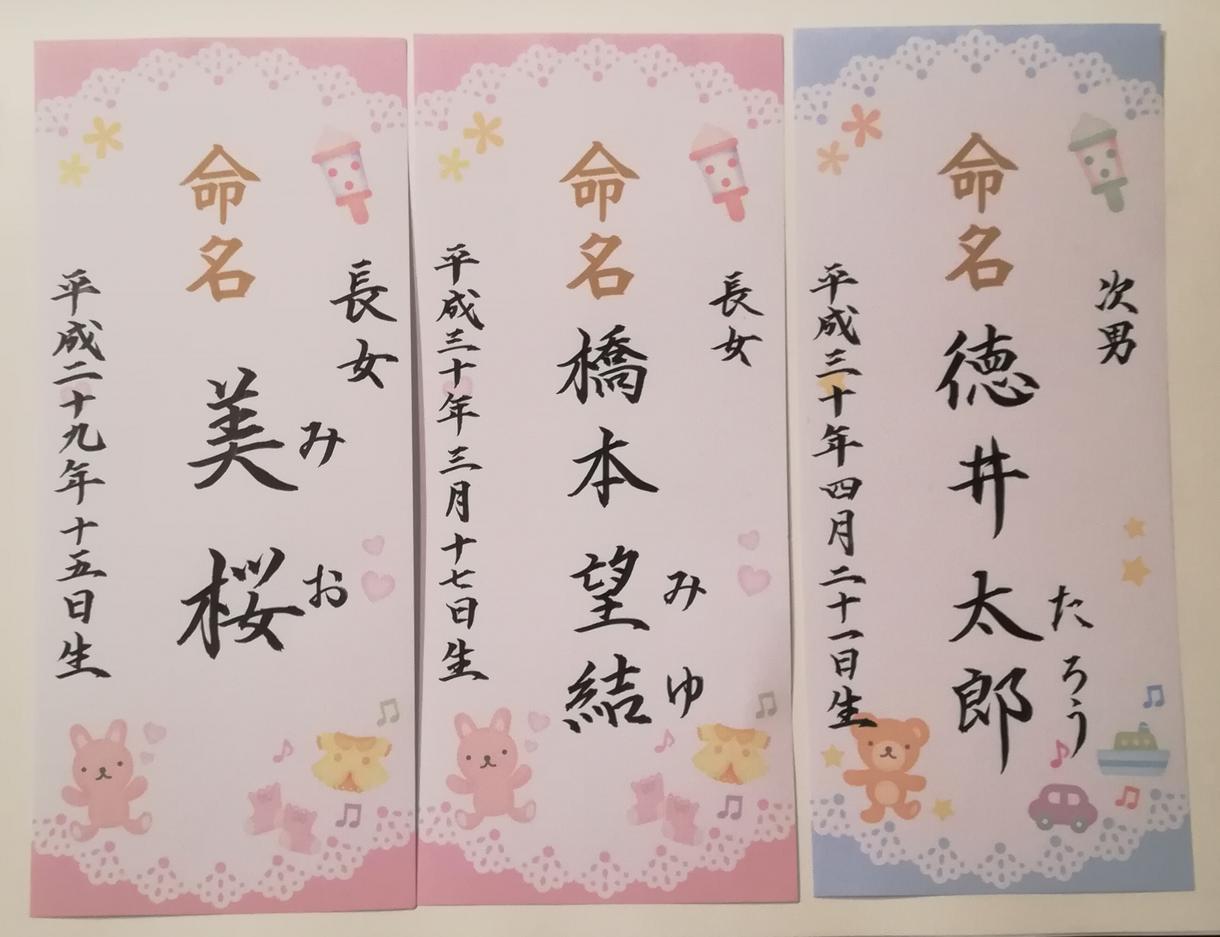 長女
命名
美桜
みお
平成二十九年十五日生
長女
命名
橋本望結
みゆ
平成三十年三月十七日生
次男
命名
徳井太郎
たろう
平成三十年四月二十一日生